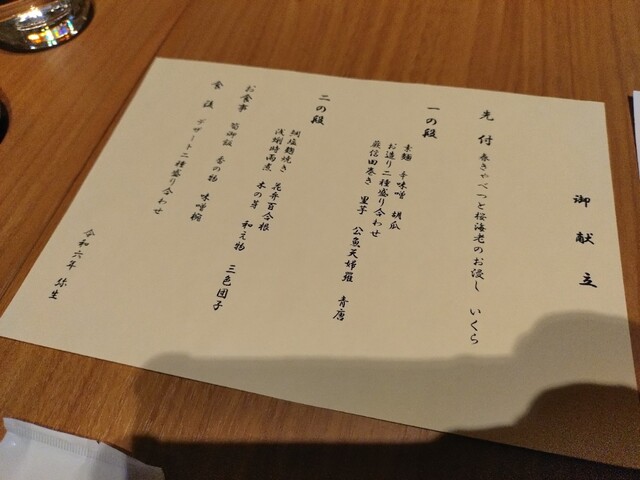 御献立
先付 春きゃべつと桜海老のお浸し いくら
一の段
素麺 辛味噌 胡瓜
お造り二種盛り合わせ
蕨信田巻き 里芋 公魚天婦羅 青唐
二の段
鯛塩麹焼き 花弁百合根
浅蜊時雨煮 木の芽 和え物 三色団子
お食事 筍御飯 香の物 味噌椀
食後 デザート二種盛り合わせ
令和六年 弥生